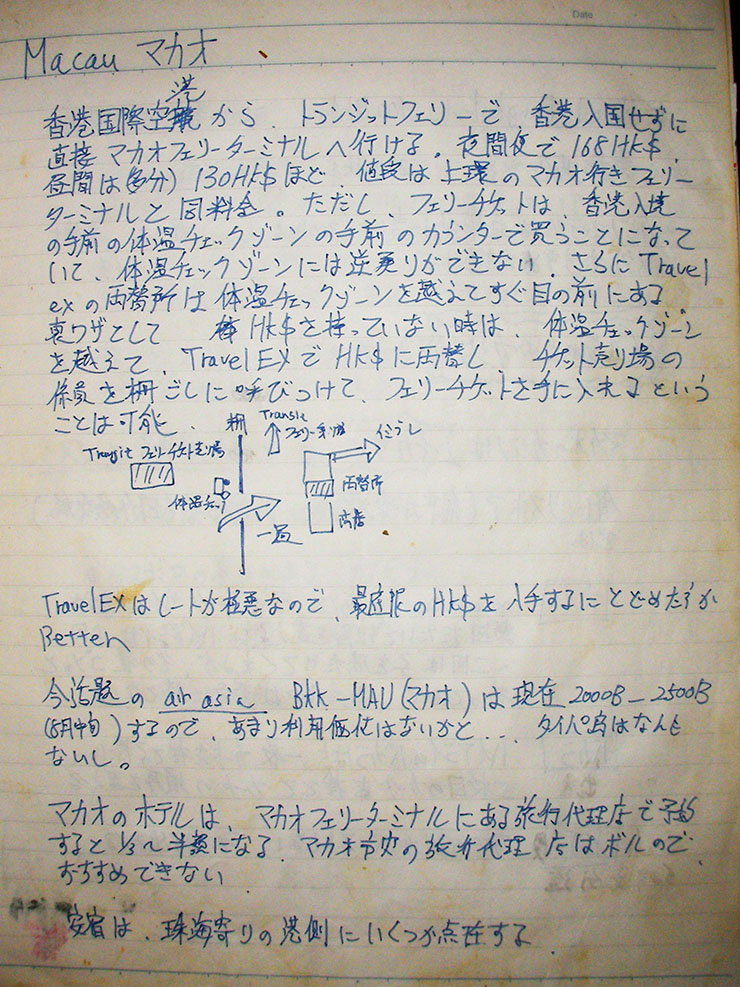 Date
Macau マカオ
香港国際空港から、トランジットフェリーで 香港入国せずに
直接マカオフェリーターミナルへ行ける。夜間便で168HK$、
昼間は(多分)130HK$ほど 値段は上環のマカオ行きフェリー
ターミナルと同料金。ただし、フェリーチケットは、香港入境
の手前の体温チェックゾーンの手前のカウンターで買うことになって
いて、体温チェックゾーンには逆乗りができない、さらにTravel
exの両替所は体温チェックゾーンを越えてすぐ目の前にある
裏ワザとして HK$を持っていない時は、体温チェックゾーン
を越えて、TravelEXでHK$に両替し、チケット売り場の
係員を柵ごしに呼びつけて、フェリーチケットを手に入れるという
ことは可能、
柵
Transit
フェリー乗り場
Transit フェリーチケット売り場
体温チェック
両替所
商店
TravelEXはレートが極悪なので、最底限のHK$を入手するにとどめた方が
Better
今話題の air asia BKK-MAU(マカオ)は現在2000B-2500B
(8月中旬)するので、あまり利用価値はないかと... タイパ島はなんも
ないし。
マカオのホテルは、マカオフェリーターミナルにある旅行代理店で予約
すると1/3~半額になる、マカオ市内の旅行代理店はボルので
おすすめできない
安宿は、珠海寄りの港側にいくつか点在する